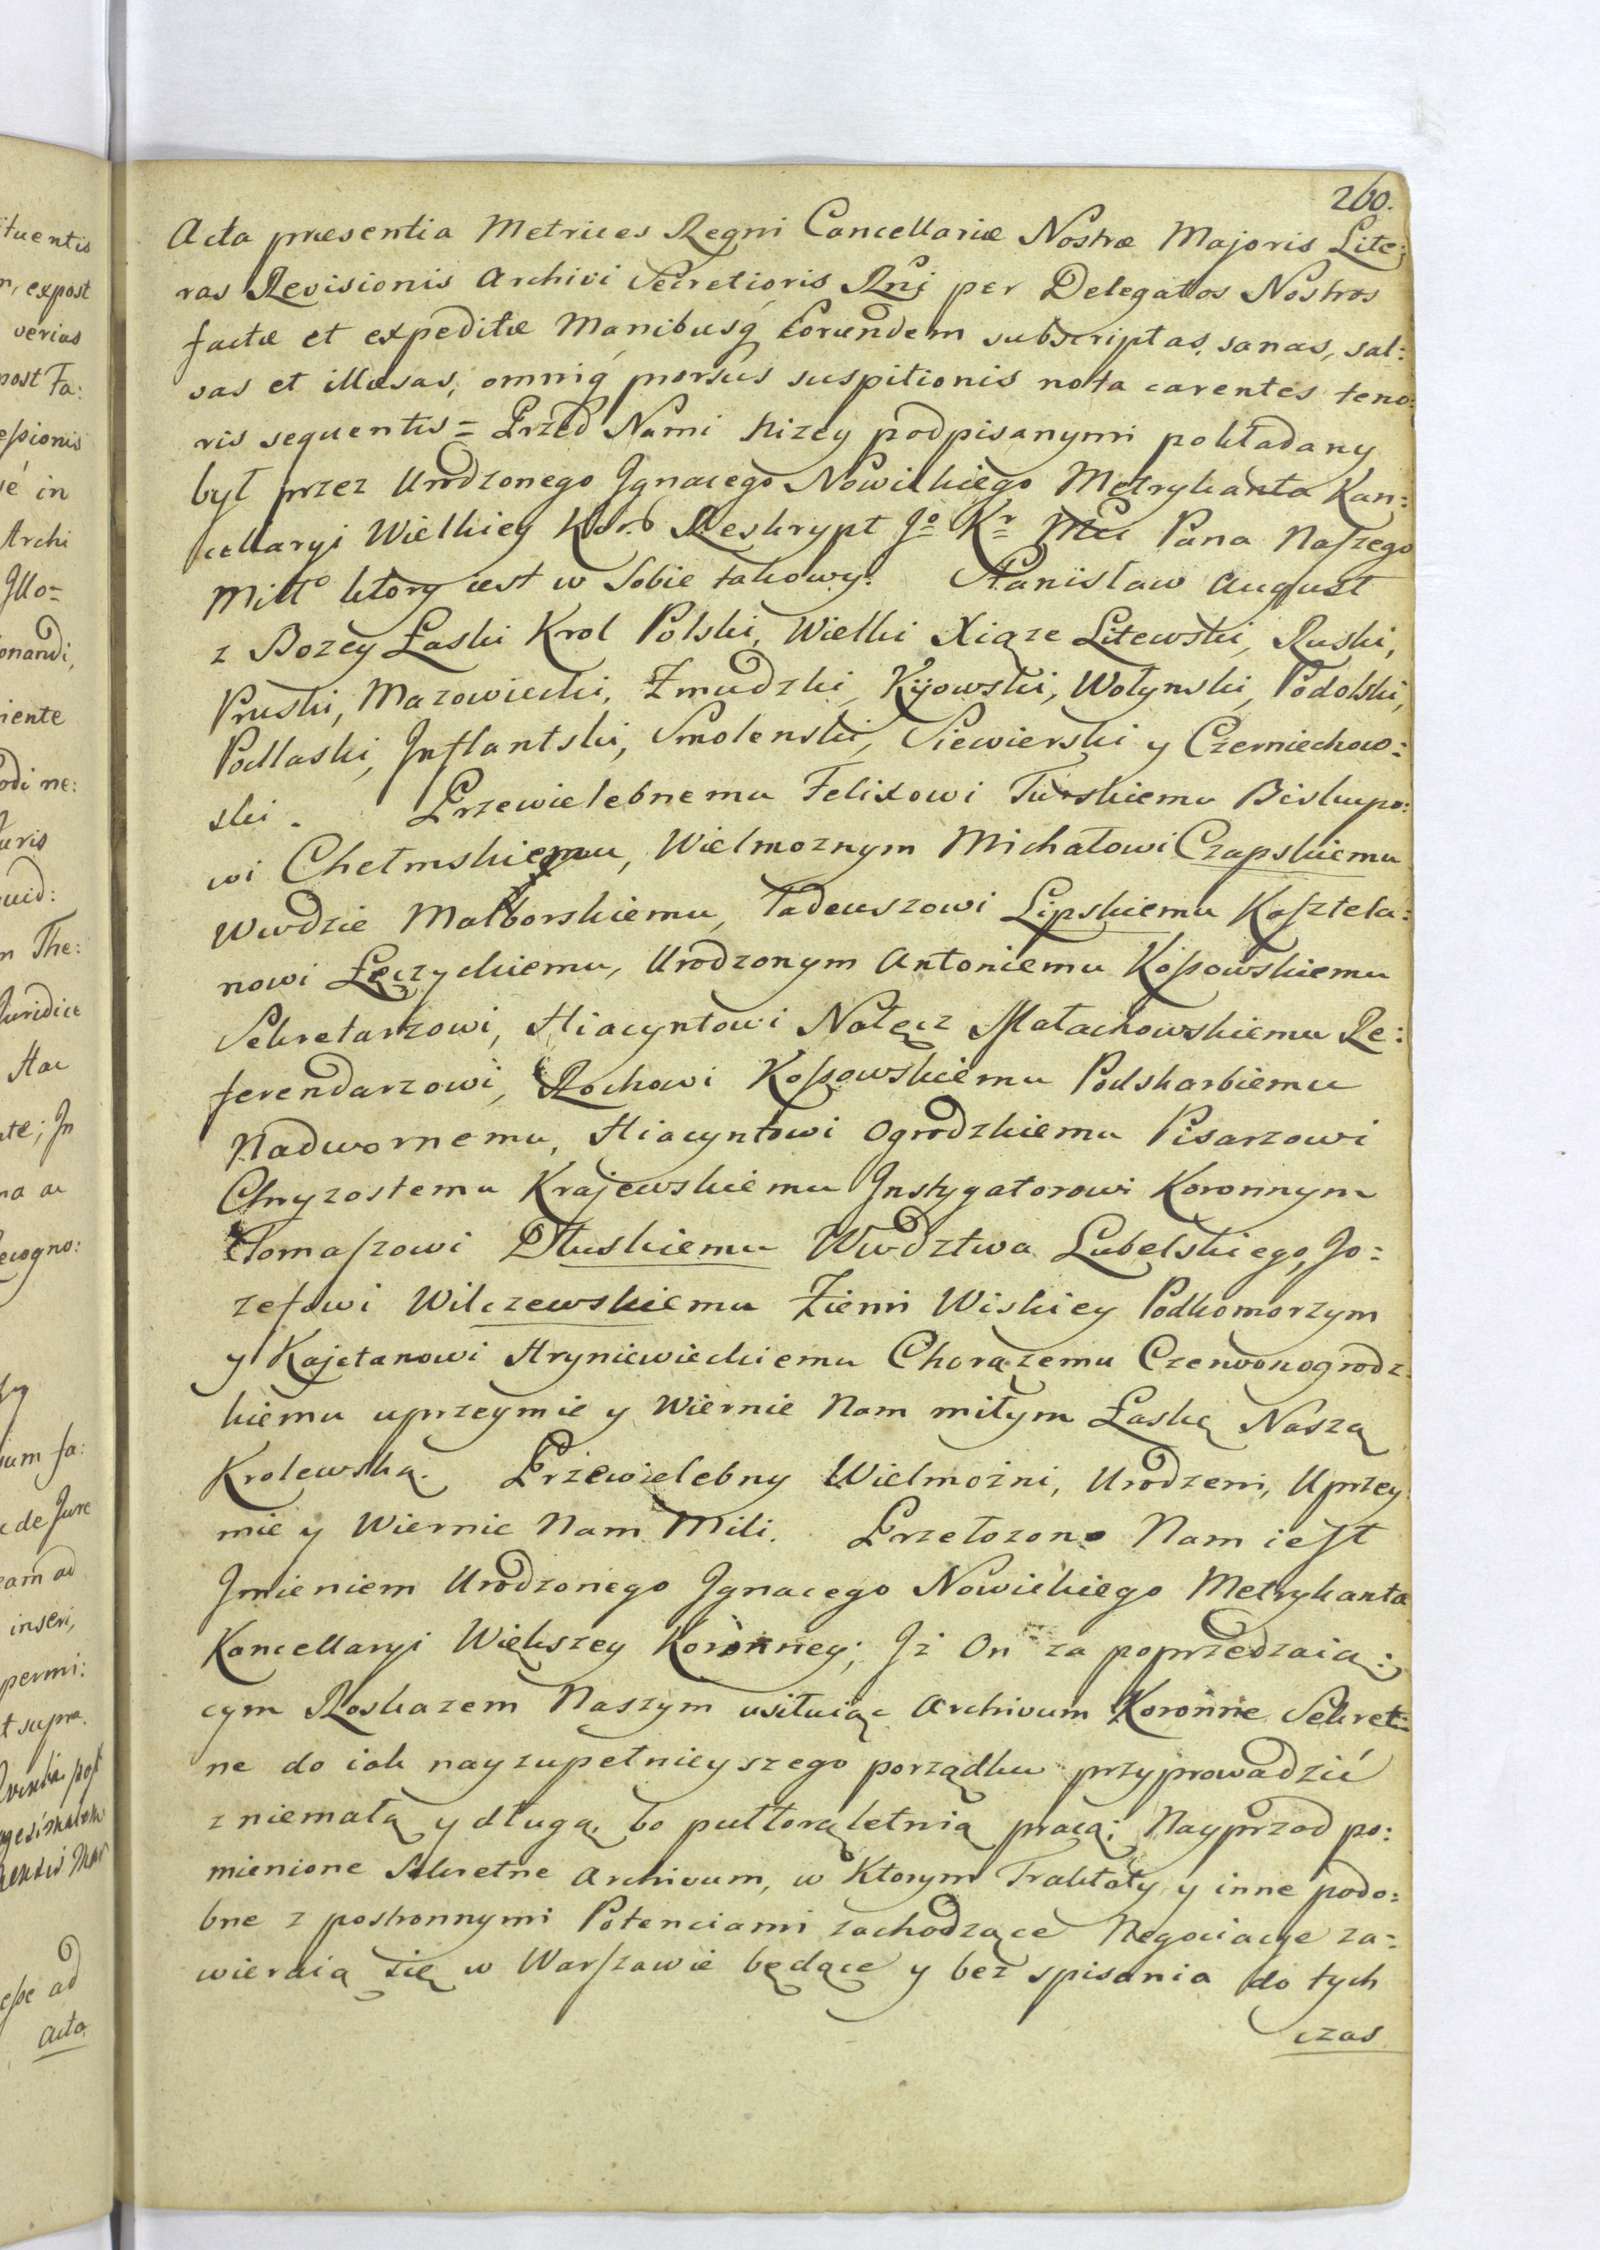 260.
Acta præsentia Metrices Regni Cancellariæ Nostræ Majoris Lite:
ras Revisionis Archivi Secretioris Rnj per Delegatos Nostros
factæ et expeditæ Manibusq́ Eorundem subscriptas, sanas, sal:
vas et illæsas, omniq́ prorsus suspitionis nota carentes teno:
ris sequentis = Przed Nami niżey podpisanymi pokładany
był przez Urodzonego Jgnacego Nowickiego Metrykanta Kan:
cellaryi Wielkiey Kor: Reskrypt Jo Kr Mci Pana Naszego
Miłło ktory iest w Sobie takowy: Stanisław August
z Bozey Łaski Krol Polski, Wielki Xiąze Litewski, Ruski,
Pruski, Mazowiecki, Zmudzki, Kijowski, Wołynski, Podolski,
Podlaski, Jnflantski, Smolenski, Siewierski y Czerniechow:
ski. Przewielebnemu Felixowi Turskiemu Biskupo:
wi Chełmskiemu, Wielmoznym Michałowi Czapskiemu
Wwdzie Malborskiemu, Tadeuszowi Lipskiemu Kasztela:
nowi Łęczyckiemu, Urodzonym Antoniemu Kossowskiemu
Sekretarzowi, Hiacyntowi Nałęcz Małachowskiemu Re:
ferendarzowi, Rochowi Kossowskiemu Podskarbiemu
Nadwornemu, Hiacyntowi Ogrodzkiemu Pisarzowi
Chryzostemu Krajewskiemu Jnstygatorowi Koronnym
Tomaszowi Dłuskiemu Wwdztwa Lubelskiego, Jo:
zefowi Wilczewskiemu Ziemi Wiskiey Podkomorzym
y Kajetanowi Hryniewieckiemu Chorązemu Czerwonogrodz:
kiemu uprzeymie y Wiernie Nam miłym Łaskę Naszą
Krolewską. Przewielebny Wielmożni, Urodzeni, Uprzey:
mie y Wiernie Nam Mili. Przełozono Nam iest
Jmieniem Urodzonego Jgnacego Nowickiego Metrykanta
Kancellaryi Większey Koronney; Jż On za poprzedzaią:
cym Roskazem Naszym usiłuiąc Archivum Koronne Sekret:
ne do iak nayzupełnieyszego porządku przyprowadzić
z niemałą y długą, bo pułtorąletnią pracą; Nayprzod po:
mienione Sekretne Archivum, w Ktorym Traktaty y inne podo:
bne z postronnymi Potenciami zachodzące Negociacye za:
wieraią się w Warszawie będące y bez spisania do tych
czas